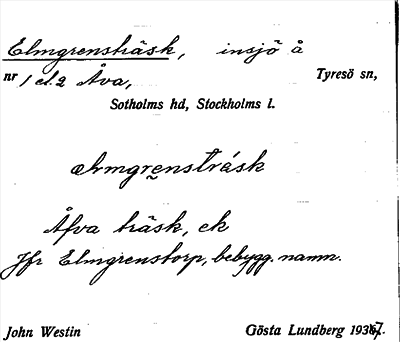 Elmgrensträsk, insjö å
nr 1 el. 2 Åva, Tyresö sn,
Sotholms hd, Stockholms l.
ə̀rmgrensträsk
Åfva träsk, ek
Jfr Elmgrenstorp, bebygg. namn.
John Westin Gösta Lundberg 1937.